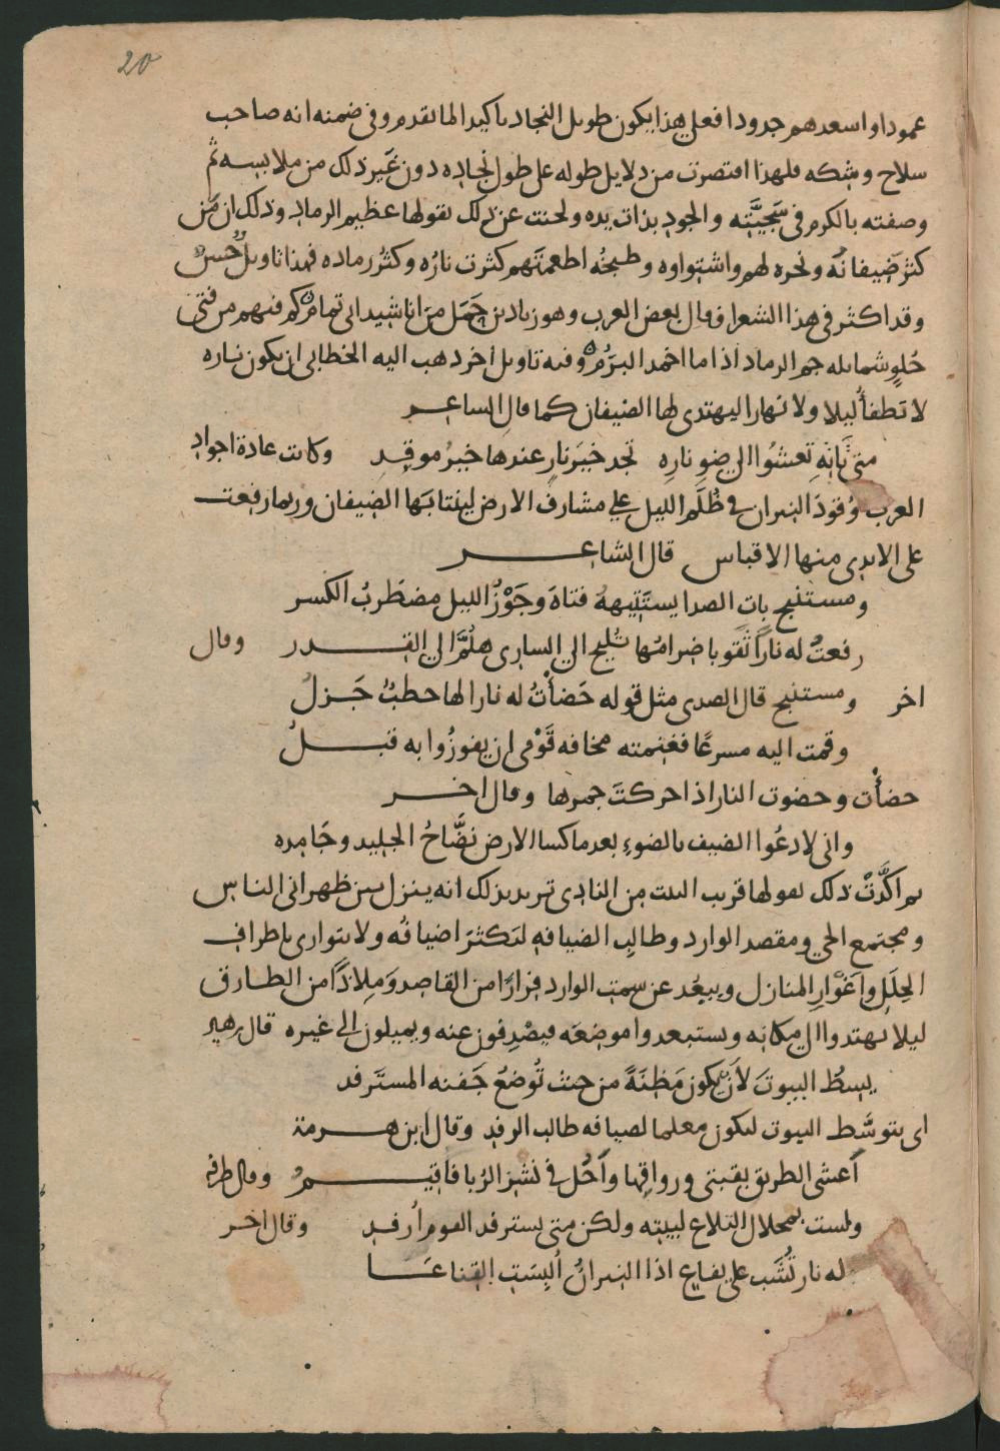 20
عمودا واسعدهم جدودا فعلى هذا يكون طويل النجاد تاكيدا لما تقدم وفى ضمنه انه صاحب
سلاح وشكه فلهذا اقتصرت من دلايل طوله على طول نجاده دون غير ذلك من ملابسه ثم
وصفته بالكرم فى سَجيَّتِه والجود بذات يده وكنت عن ذلك بقولها عظيم الرماد وذلك ان من
كثر ضيفانه ونحره لهم واشتواوه وطبخُه اطعمتَهم كثرت نارُه وكثُر رماده فهذا تاويلٌ حُسنٌ
وقد اكثر فى هذا الشعرا فقال بعض العرب وهو زياد بن حَمَل من اناشيد ابى تمام ه كم فيهم من فتى
حُلوٍ شمايله جم الرماد اذا ما اخمد البَرَمُ ه وفيه تاويل اخر ذهب اليه الخطابى ان يكون ناره
لا تطفأُ ليلا ولا نهارا ليهتدى لها الضيفان كما قال الشاعر
متى تَأتِهِ تعشُوا الى ضو نارِه تجد خيَر نارٍ عندها خيرُ موقِد وكانت عادة اجواد
العرب وُقودَ النيران فى ظُلَم الليل على مشارف الارض لينتابَها الضيفان وربما رفعت
على الايدى منها الاقباس قال الشاعر
ومستنبح بات الصدا يستَتِيههُ فتاهَ وجَوْزُ الليل مضطَربُ الكسر
رفعتُ له نارًا ثَقوبا ضرامُها تُليح الى السارى هلُمَّ الى القدر وقال
اخر ومستنبح قال الصدى مثل قوله حَضأتُ له نارا لها حطبٌ جَزلُ
وقمت اليه مسرعًا فغنمته مخافه قَوْمى ان يفوزُوا به قبلُ
حضأت وحضوت النار اذا حركتَ جمرها وقال اخر
وانى لادعُوا الضيف بالضوءِ بعد ما كسا الارض نضَّاحُ الجليد وجَامده
ثم اكدَّتْ ذلك بقولها قريب البيت من النادى تريد بذلك انه ينزل بين ظهرانى الناس
ومجتمع الحي ومقصد الوارد وطالِبِ الضيافه لتكثرَ اضيافُه ولا يتوارى باطراف
الحِلَلِ واَغوَارِ المنازل ويبعُد عن سمت الوارد فرارًا من القاصد ومِلاذًا من الطارق
ليلا يهتدوا الى مكانه ويستبعدوا موضعَه فيصْدِفون عنه ويميلون الى غيره قال زهير
يسِطُ البيوتَ لاَن يكون مَظِنَةً من حيث تُوضعُ جَفنه المستَرفد
اى يتوسَّط البيوت ليكون معلما لضيافه طالب الرفد وقال ابن هرمة
اَغشى الطريق بقبتى ورواقِها واَحُل فى نشز الرُبا فاقيمُ وقال طرفه
ولست بمحلال التلاع لبيته ولكن متى يسترفد القوم اُرفد وقال اخر
له نار تُشَب على يفاعٍ اذا النيرانُ اُلبِسَتِ القِناعَا